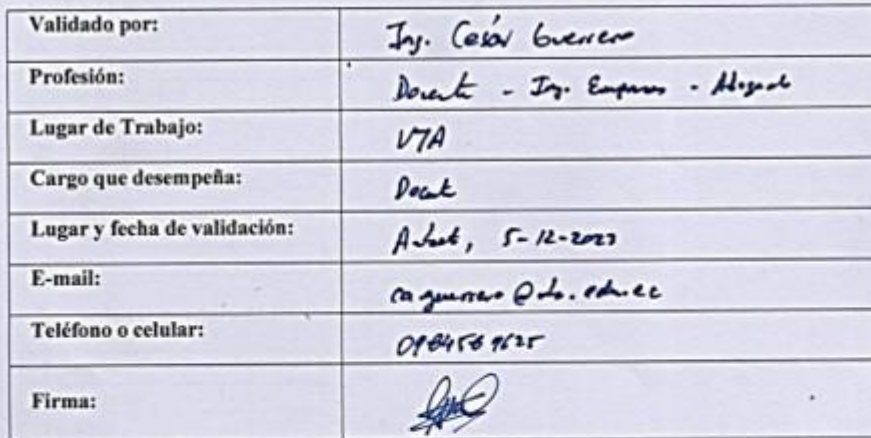 Validado por: Ing. César Guerrero
Profesión: Docente - Ing. Empresas - Abogado
Lugar de Trabajo: UTA
Cargo que desempeña: Docente
Lugar y fecha de validación: 5-12-2023
E-mail:
Teléfono o celular:
Firma: